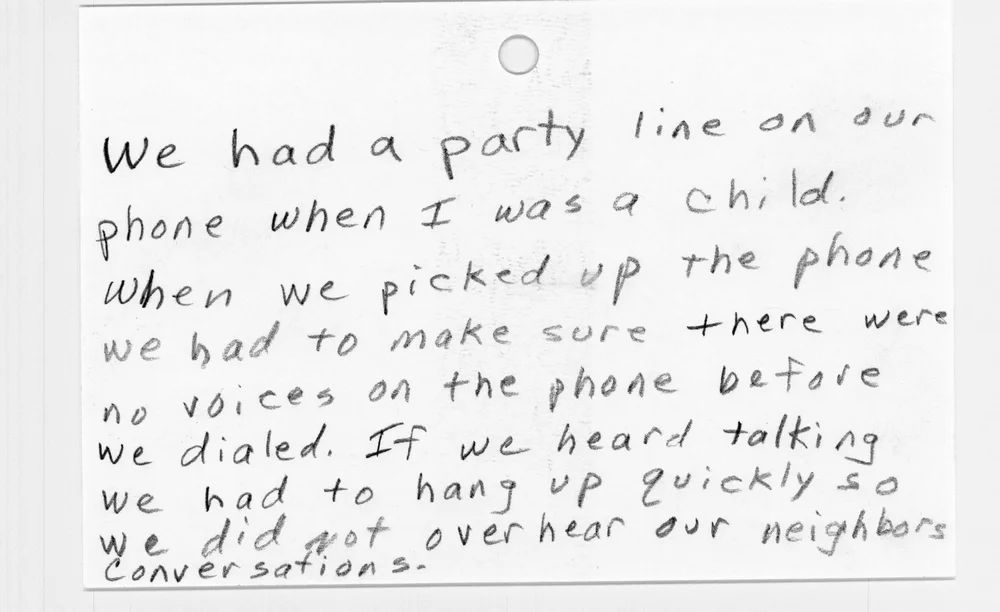 We had a party line on our
phone when I was a child.
When we picked up the phone
we had to make sure there were
no voices on the phone before
we dialed. If we heard talking
we had to hang up quickly so
we did not overhear our neighbors
conversations.